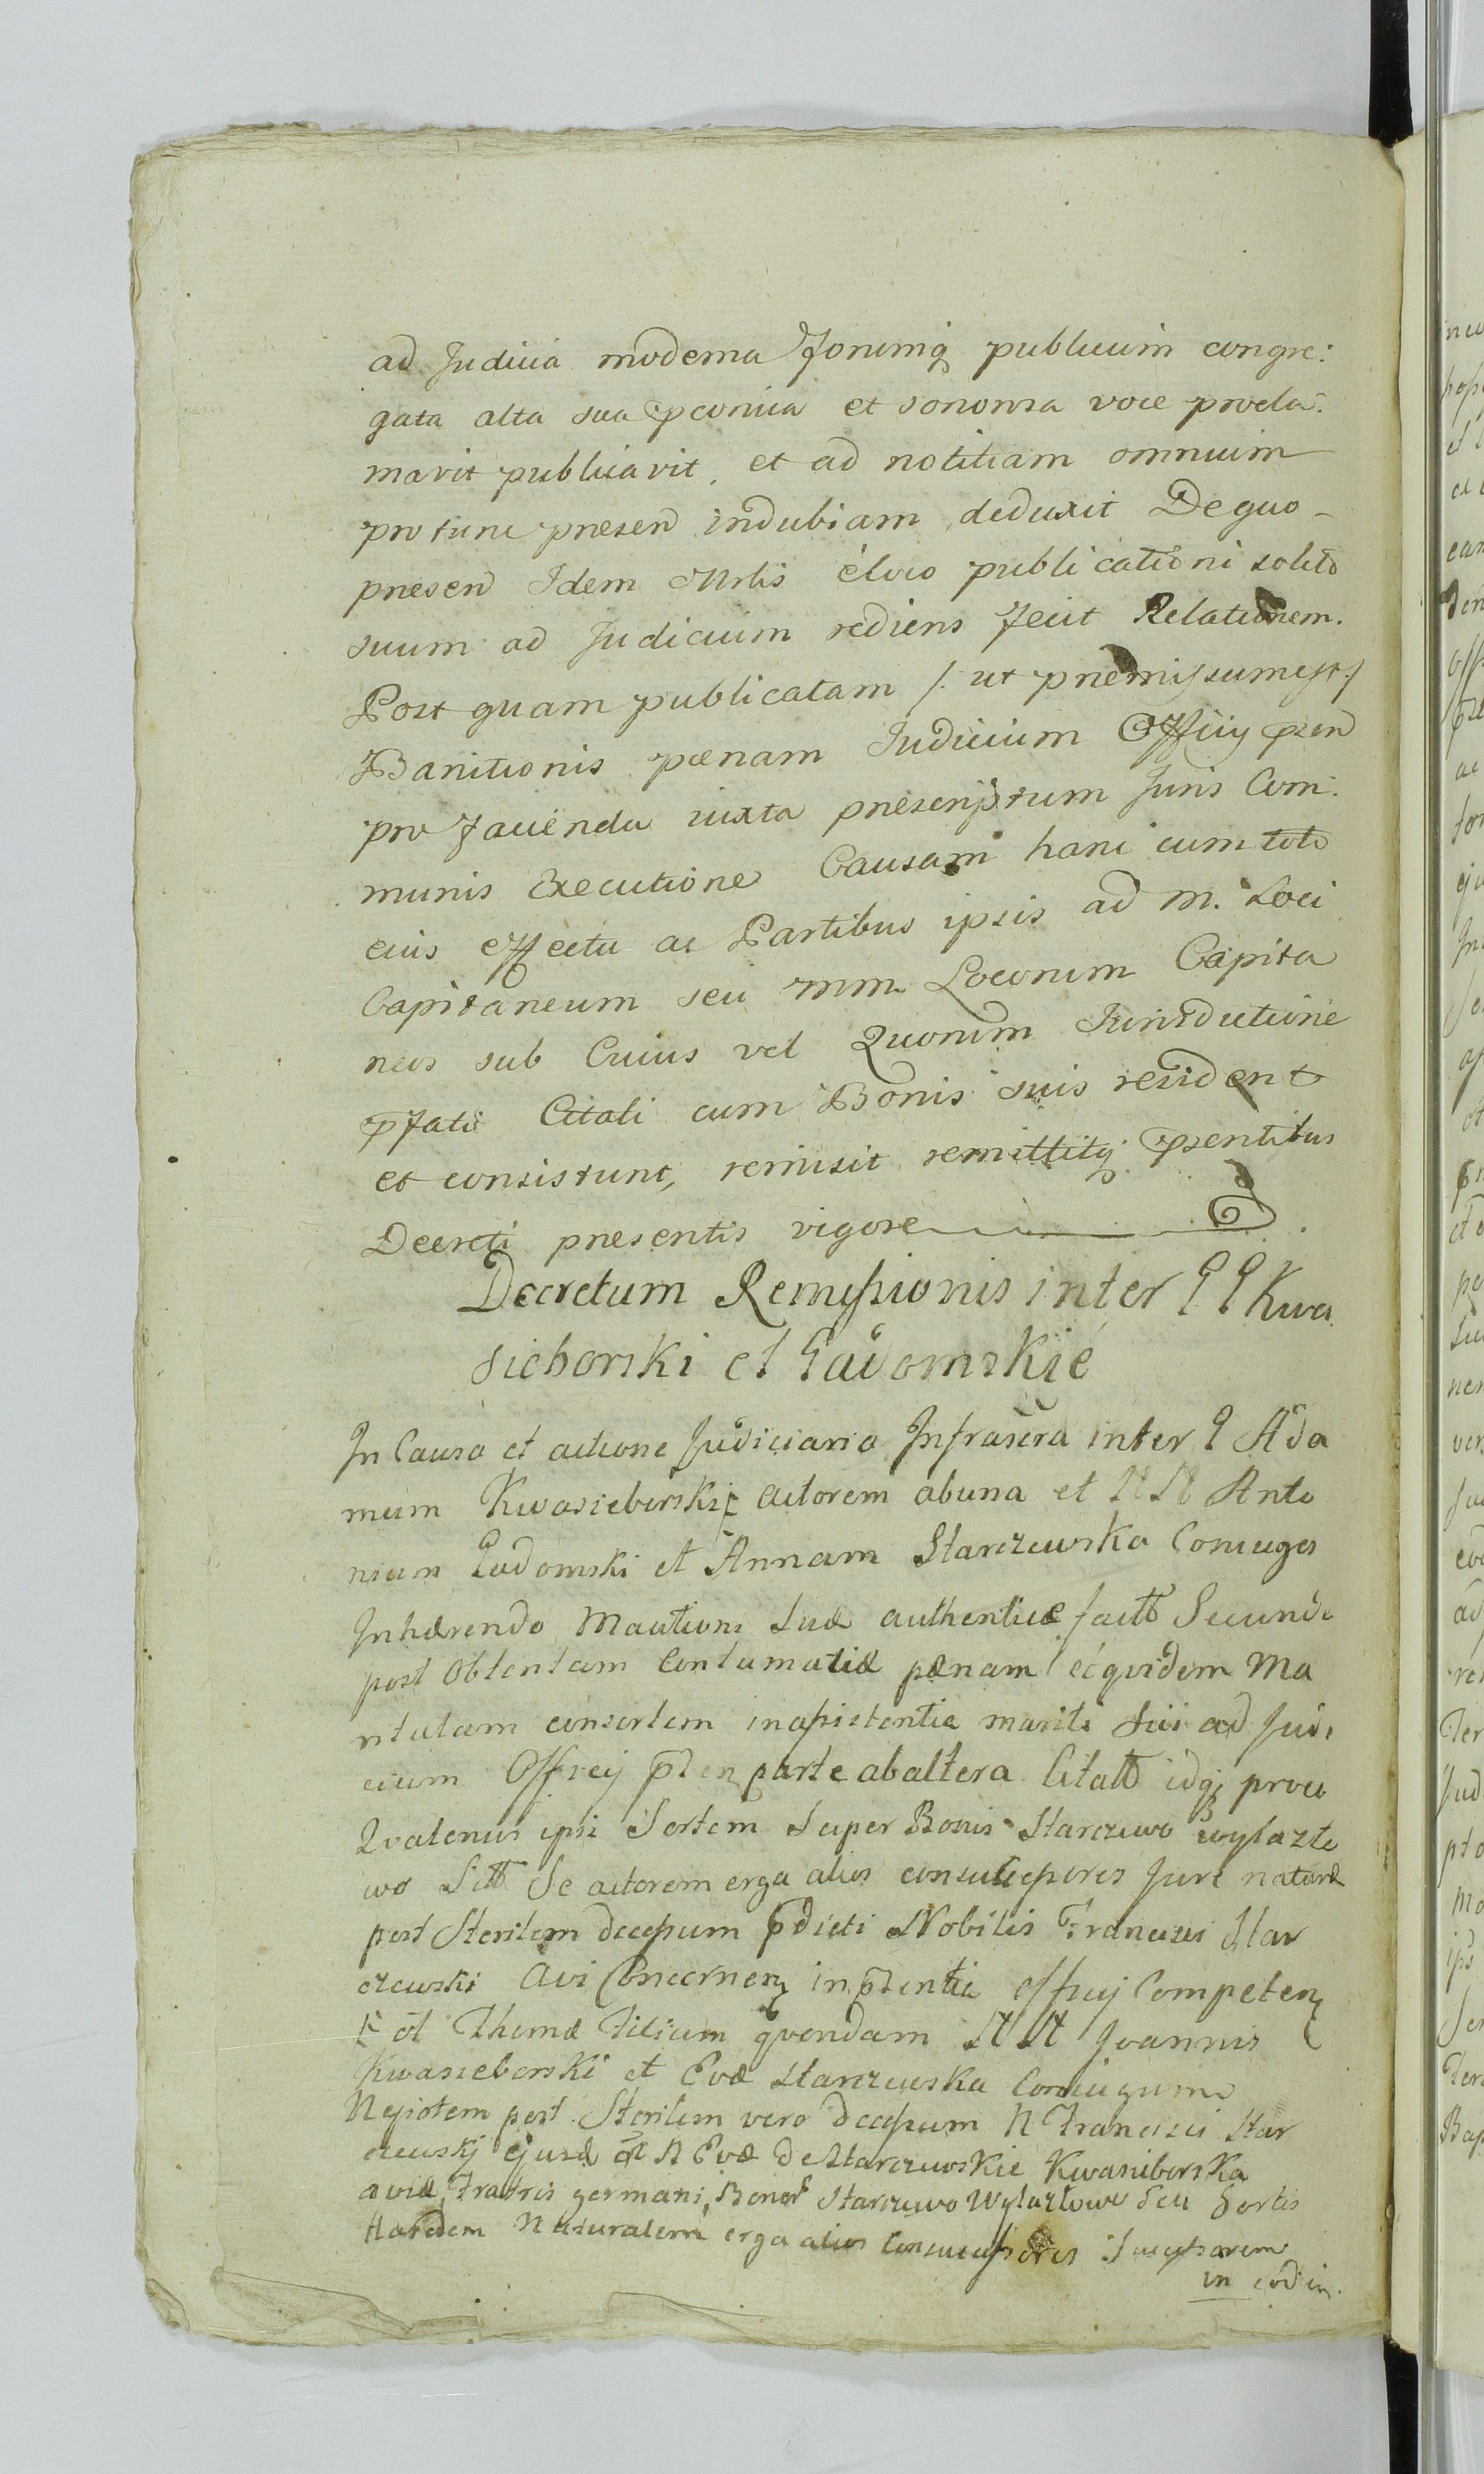 ad Judicia moderna Forumq publicum congre:
gata alta sua pconica et sonorosa voce procla:
mavit publicavit, et ad notitiam omnium
pro tunc presen indubiam deduxit De quo
presen Idem Mrlis eloco publicationi solito
suum ad Judicium rediens fecit Relationem.
Post quam publicatam /: ut premissum est :/
Banitionis pœnam Judicium Officij psen
pro facienda iuxta prescriptum Juris Com:
munis Executione Causam hanc cum toto
eius effectu ac Partibus ipsis ad M. Loci
Capitaneum seu MM. Locorum Capita
neos sub Cuius vel Quorum Jurisdictione
pfati Citati cum Bonis suis resident
et consistunt, remisit remittitq psentibus
Decreti presentis vigore
Decretum Remissionis inter G G Kwa
sieborski et Gadomskie
In Causa et actione Judiciaria Infrascra inter G Ada
mum Kwasieborski actorem ab una et N N Anto
nium Gadomski et Annam Starczewska Coniuges
Inhærendo suæ authenticæ Secundo
post Obtentam Contumatiæ pænam et quidem Ma
ritatam consortem in assistentia mariti sui ad Judi
cium Officij pten parte ab altera Citatt idq
Quatenus ipsi Sortem super Bonis Starczewo Wylazło
wo Sitt Se actorem erga alios consuccessores Jure naturæ
post Sterilem decessum pdicti Nobilis Francisci Star
czewski Avi Concernen in ptentia officij Competen
ol Thomæ Filium quondam N N Joannis
Kwasieborski et Evæ Starczewska Coniugum
Nepotem post Sterilem vero decessum N Francisci Star
czewskj ejusd ol N Evæ de Starczewskie Kwasieborska
aviæ, Fratris germani, Bonor Starczewo Wylazłowo seu Sortis
Hæredem Naturalem erga alios Consuccessores Successorem
in eodem